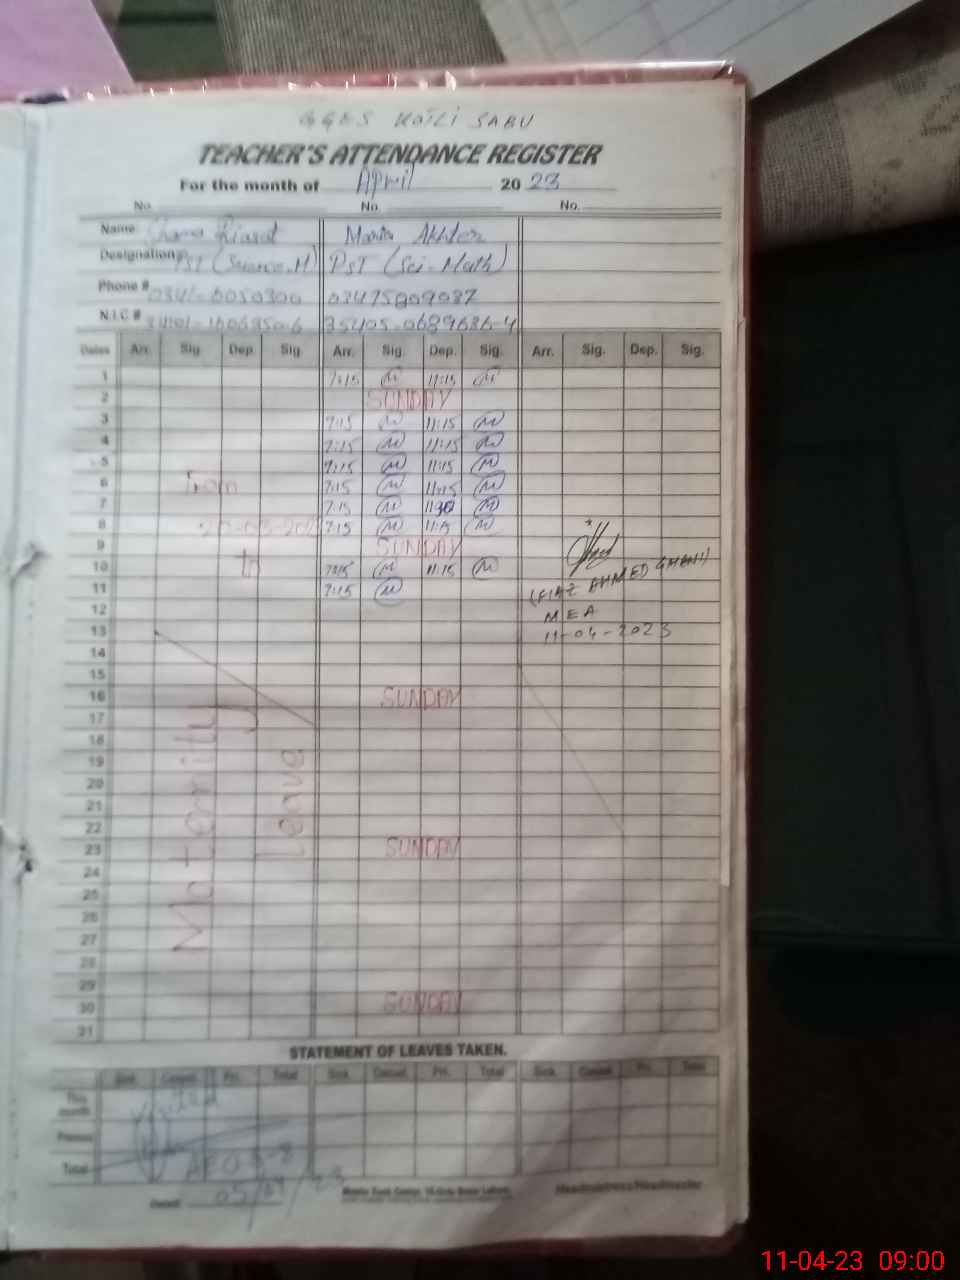 GGES KOTLI SABU
TEACHER'S ATTENDANCE REGISTER
For the month of April 2023
No. No. No.
Name Riasat Maria Akhter
Designation PST (Science-M) PST (Sci-Math)
Phone # 03475809087
N.I.C #
Dates Arr. Sig. Dep. Sig. Arr. Sig. Dep. Sig. Arr. Sig. Dep. Sig.
1 7:15 M 11:15 M
2 SUNDAY
3 7:15 M 11:15 M
4 7:15 M 11:15 M
5 7:15 M 11:15 M
6 From 7:15 M 11:15 M
7 7:15 M 1130 M
8 7:15 M 11:15 M
9 SUNDAY
10 to M 11:15 M
11 7:15 M
(FIAZ AHMED GHANI)
12 MEA
13 11-04-2023
14
15
16 SUNDAY
17
18
19
20
21
22
23 SUNDAY
24
25
26
27
28
29
30 SUNDAY
31
Maternity Leave
STATEMENT OF LEAVES TAKEN.
Sick. Casual. Pri. Total Sick. Casual. Pri. Total Sick. Casual. Pri. Total
This month
Visited
Total
AEO
Headmistress/Headmaster
11-04-23 09:00